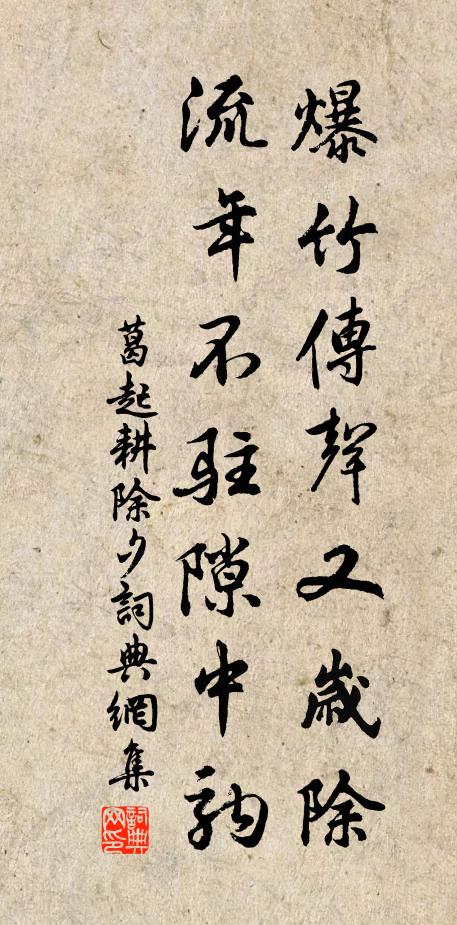 爆竹傳聲又歲除
流年不駐隙中駒
葛起耕除夕詞典網集
詞典网印